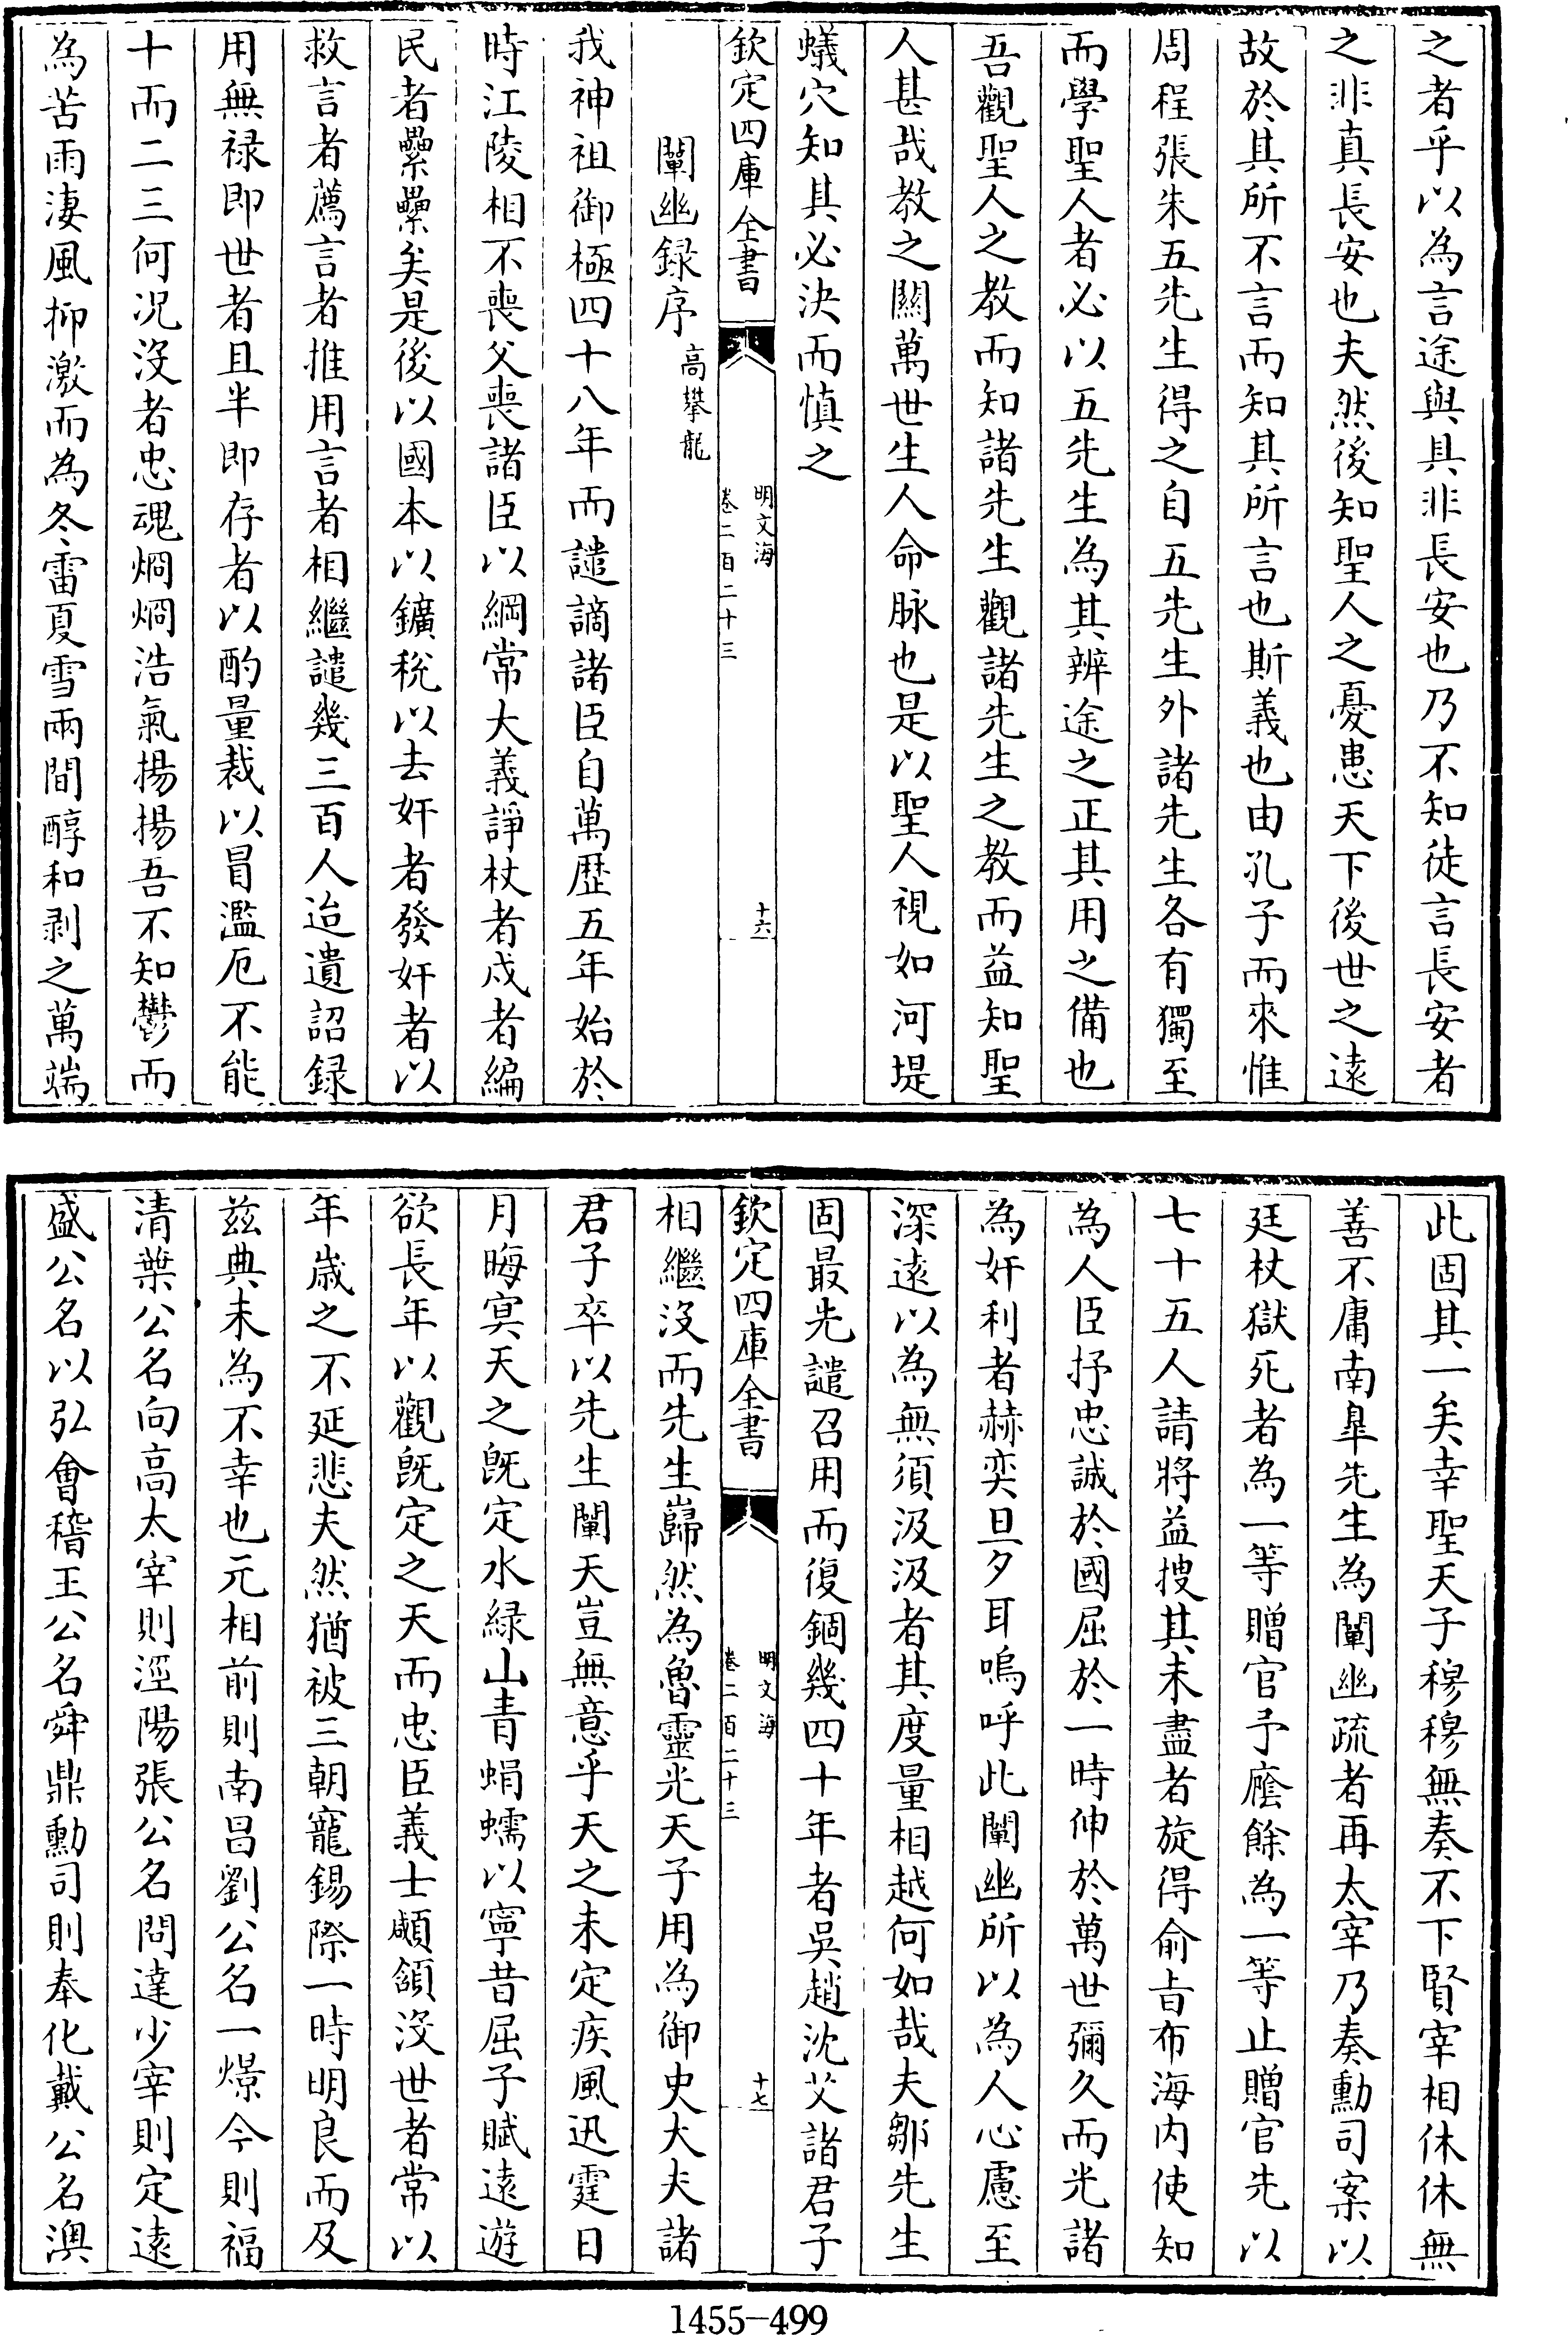 之者乎以為言途與具非長安也乃不知徒言長安者
之非真長安也夫然後知聖人之憂患天下後世之遠
故於其所不言而知其所言也斯義也由孔子而來惟
周程張朱五先生得之自五先生外諸先生各有獨至
而學聖人者必以五先生為其辨途之正其用之備也
吾觀聖人之教而知諸先生觀諸先生之教而益知聖
人甚哉教之關萬世生人命脉也是以聖人視如河堤
蟻穴知其必決而慎之
欽定四庫全書
明文海
卷二百二十三
十六
闡幽録序 高攀龍
我神祖御極四十八年而譴謫諸臣自萬歷五年始於
時江陵相不喪父喪諸臣以綱常大義諍杖者戍者編
民者纍纍矣是後以國本以鑛稅以去奸者發奸者以
救言者薦言者推用言者相繼譴幾三百人迨遺詔録
用無禄即世者且半即存者以酌量裁以冒濫厄不能
十而二三何况沒者忠魂烱烱浩氣揚揚吾不知鬱而
為苦雨淒風抑激而為冬雷夏雪兩間醇和剥之萬端
此固其一矣幸聖天子穆穆無奏不下賢宰相休休無
善不庸南臯先生為闡幽疏者再太宰乃奏勳司案以
廷杖獄死者為一等贈官予廕餘為一等止贈官先以
七十五人請將益搜其未盡者旋得俞旨布海内使知
為人臣抒忠誠於國屈於一時伸於萬世彌久而光諸
為奸利者赫奕旦夕耳嗚呼此闡幽所以為人心慮至
深遠以為無須汲汲者其度量相越何如哉夫鄒先生
固最先譴召用而復錮幾四十年者吳趙沈艾諸君子
欽定四庫全書
明文海
卷二百二十三
十七
相繼沒而先生巋然為魯靈光天子用為御史大夫諸
君子卒以先生闡天豈無意乎天之未定疾風迅霆日
月晦冥天之既定水緑山青蜎蠕以寧昔屈子賦遠遊
欲長年以觀既定之天而忠臣義士顑頷沒世者常以
年歲之不延悲夫然猶被三朝寵錫際一時明良而及
兹典未為不幸也元相前則南昌劉公名一燝今則福
清葉公名向高太宰則涇陽張公名問達少宰則定遠
盛公名以弘會稽王公名舜鼎勳司則奉化戴公名澳
1455-499